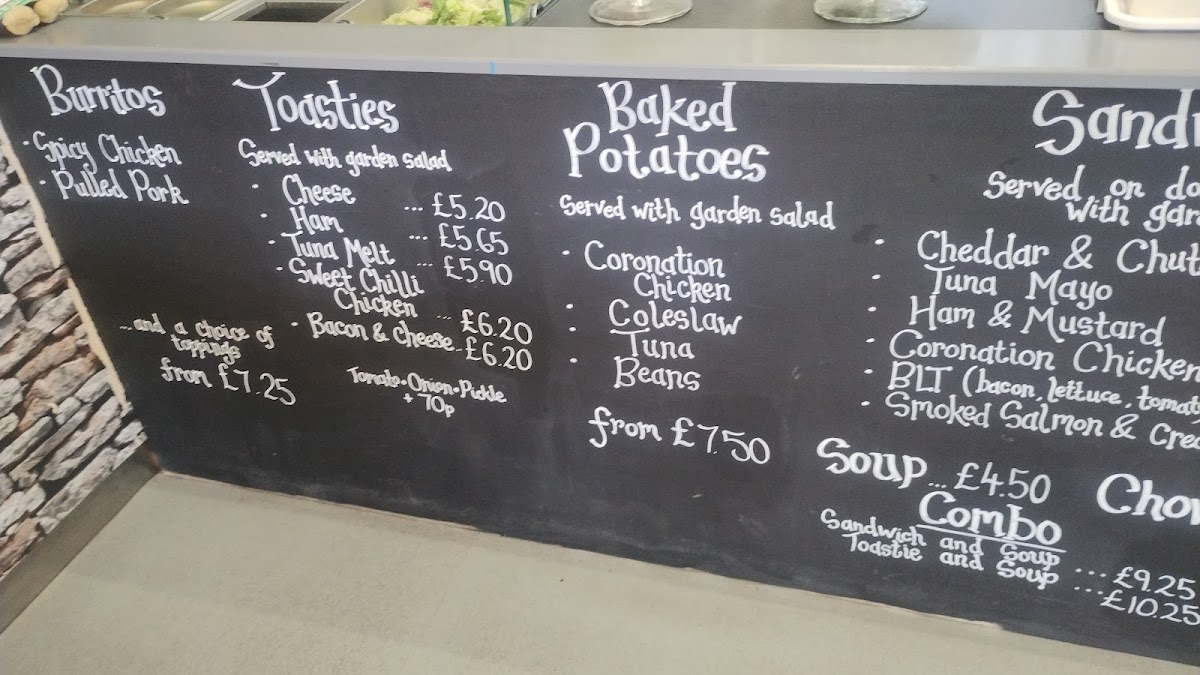 Burritos
· Spicy Chicken
· Pulled Pork
...and a choice of
toppings
from £7.25
Toasties
Served with garden salad
· Cheese ... £5.20
· Ham ... £5.65
· Tuna Melt ... £5.90
· Sweet Chilli
Chicken ... £6.20
· Bacon & cheese .. £6.20
Tomato · Onion · Pickle
+ 70p
Baked
Potatoes
Served with garden salad
· Coronation
Chicken
· Coleslaw
· Tuna
· Beans
from £7.50
Sand
Served on do
with gar
· Cheddar & Chut
· Tuna Mayo
· Ham & Mustard
· Coronation Chicken
· BLT (bacon, lettuce, tomat
· Smoked Salmon & Cre
Soup ... £4.50
Cho
Combo
Sandwich and Soup ... £9.25
Toastie and Soup ... £10.25